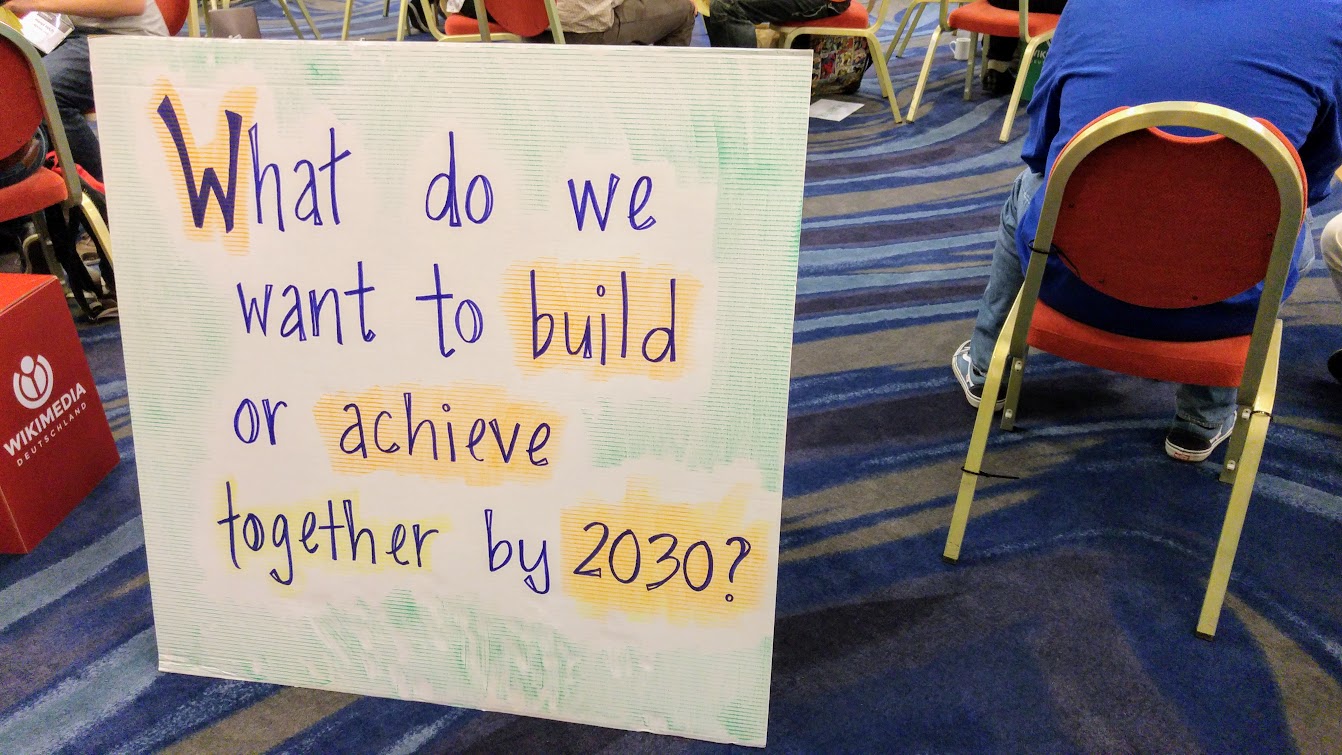 What do we
want to build
or achieve
together by 2030?
WIKIMEDIA
DEUTSCHLAND